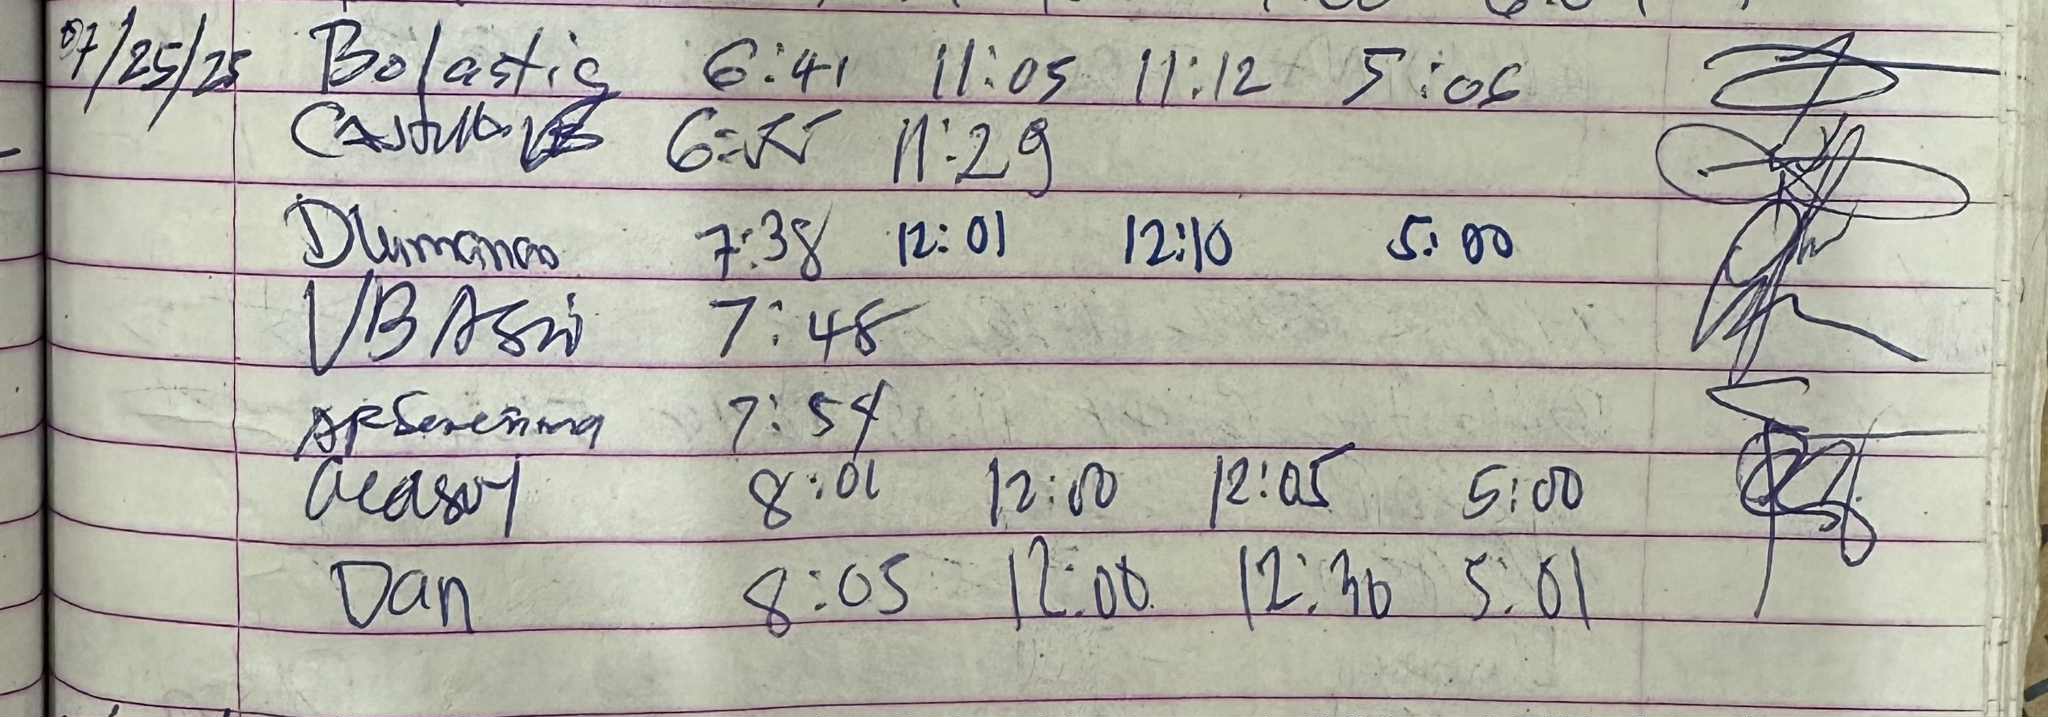 07/25/25 Bolastig 6:41 11:05 11:12 5:06
6:55 11:29
7:38 12:01 12:10 5:00
VB 7:48
7:54
8:01 12:00 12:05 5:00
Dan 8:05 12:00 12:30 5:01